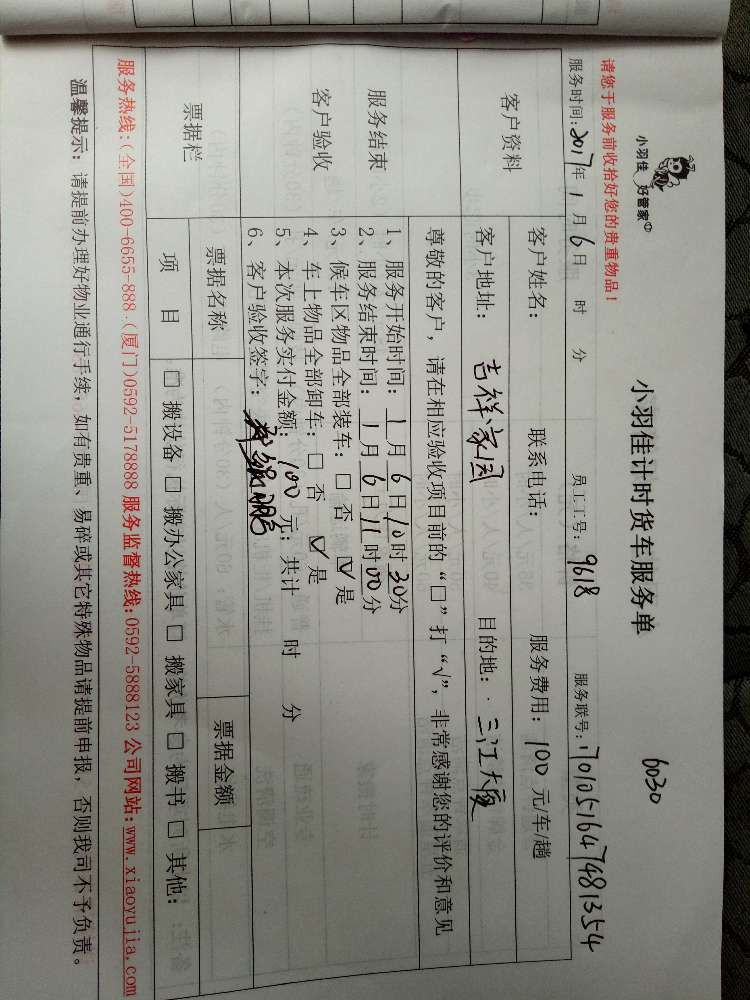 小羽佳 好管家
小羽佳计时货车服务单
6030
请您于服务前收拾好您的贵重物品！
服务时间：2017年 1 月 6 日 时 分 员工工号：9618 服务联号：1701051647481354
客户资料
客户姓名： 联系电话： 服务费用：100 元/车/趟
客户地址：吉祥家园 目的地：三江大厦
服务结束
客户验收
尊敬的客户，请在相应验收项目前的“□”打“√”，非常感谢您的评价和意见
1、服务开始时间：1 月 6 日 10 时 30 分
2、服务结束时间：1 月 6 日 11 时 00 分
3、候车区物品全部装车：□ 否 ☑ 是
4、车上物品全部卸车：□ 否 ☑ 是
5、本次服务实付金额：100 元；共计 时 分
6、客户验收签字：
票据栏
票据名称 票据金额
项 目 □ 搬设备 □ 搬办公家具 □ 搬家具 □ 搬书 □ 其他：
服务热线：(全国)400-6655-888 (厦门)0592-5178888 服务监督热线：0592-5888123 公司网站：www.xiaoyujia.com
温馨提示：请提前办理好物业通行手续，如有贵重、易碎或其它特殊物品请提前申报，否则我司不予负责。